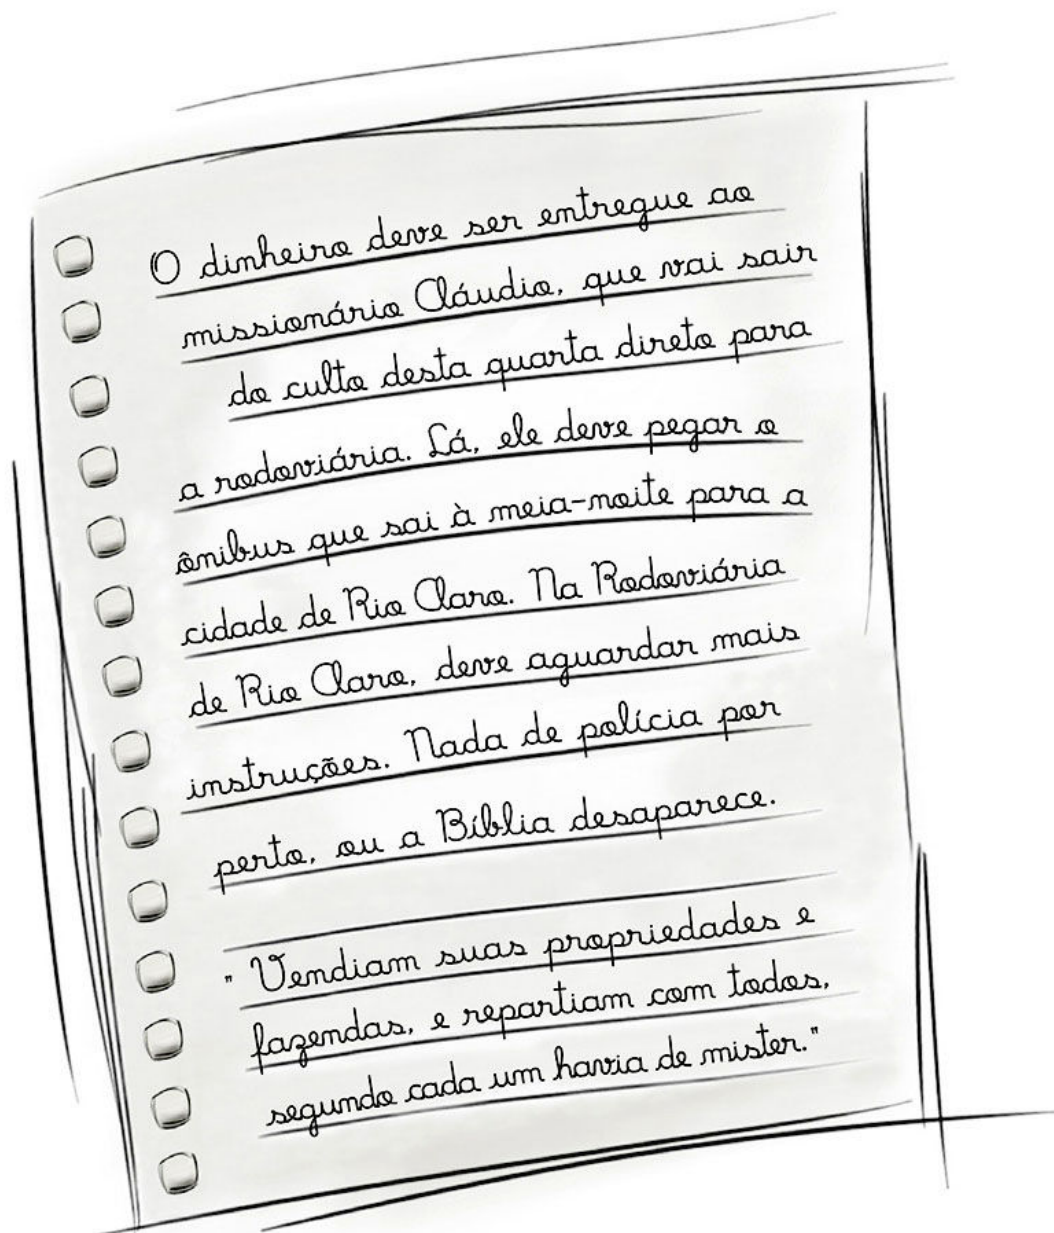 O dinheiro deve ser entregue ao
missionário Cláudio, que vai sair
do culto desta quarta direto para
a rodoviária. Lá, ele deve pegar o
ônibus que sai à meia-noite para a
cidade de Rio Claro. Na Rodoviária
de Rio Claro, deve aguardar mais
instruções. Nada de polícia por
perto, ou a Bíblia desaparece.
"Vendiam suas propriedades e
fazendas, e repartiam com todos,
segundo cada um havia de mister."